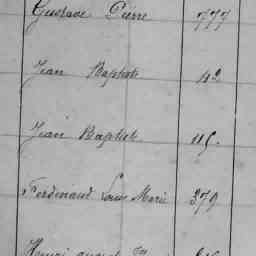 Gustave Pierre 777
Jean Baptiste 42
Jean Baptist 115.
Ferdinand Louis Marie 379
Henri